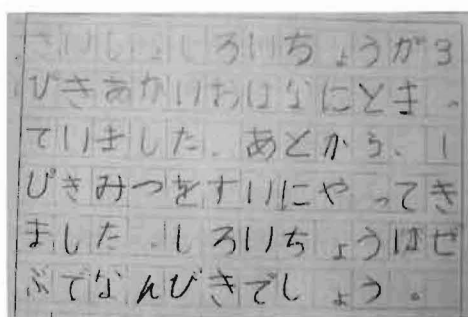 さいしょしろいちょうが3
びきあかいおはなにとまっ
ていました。あとから、1
ぴきみつをすいにやってき
ました。しろいちょうはぜ
ぶでなんびきでしょう。